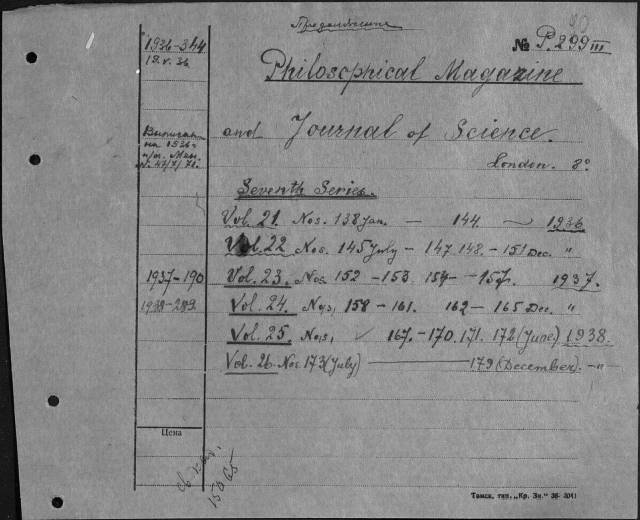 Продолжение
№ P.299 III
1936-344
19.V.36
Philosophical Magazine
and Journal of Science.
London. 8°
Выписан
на 1936 г.
Seventh Series.
Vol. 21 Nos. 138 Jan. — 144. — 1936
Vol. 22 Nos. 145 July - 147 148. - 151 Dec. "
1937-190 Vol. 23. Nos. 152 - 153 154 - 157. 1937.
1938-289. Vol. 24. Nos. 158 - 161. 162 - 165 Dec. "
Vol. 25 Nos. 167. - 170. 171. 172 (June) 1938.
Vol. 26 Nos. 173 (July) — 179 (December). -"-
Цена
Томск, тип. „Кр. Зн." 36-3041